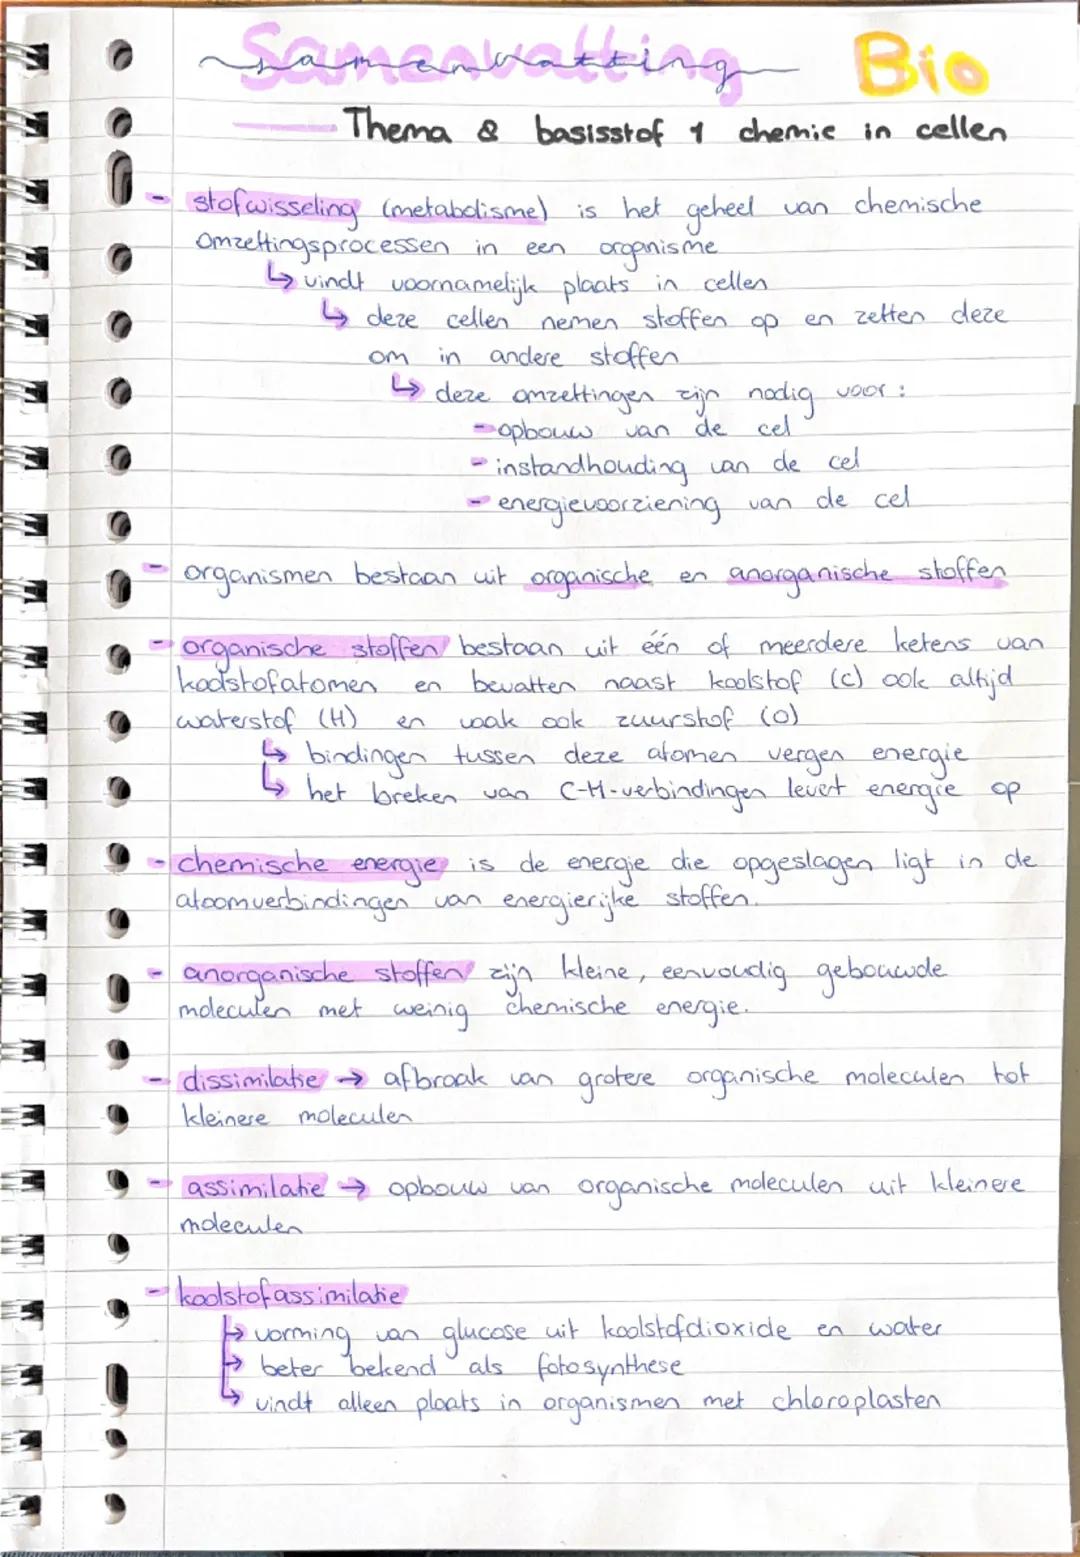 Samenvatting Bio
Thema & basisstof 1 chemie in cellen
- stofwisseling (metabolisme) is het geheel van chemische
omzettingsprocessen in een organisme
↳ vindt voornamelijk plaats in cellen
↳ deze cellen nemen stoffen op en zetten deze
om in andere stoffen
↳ deze omzettingen zijn nodig voor:
- opbouw van de cel
- instandhouding van de cel
- energievoorziening van de cel
- organismen bestaan uit organische en anorganische stoffen
- organische stoffen bestaan uit één of meerdere ketens van
koolstofatomen en bevatten naast koolstof (C) ook altijd
waterstof (H) en vaak ook zuurstof (O)
↳ bindingen tussen deze atomen vergen energie
↳ het breken van C-H-verbindingen levert energie op
- chemische energie is de energie die opgeslagen ligt in de
atoomverbindingen van energierijke stoffen.
- anorganische stoffen zijn kleine, eenvoudig gebouwde
moleculen met weinig chemische energie.
- dissimilatie → afbraak van grotere organische moleculen tot
kleinere moleculen
- assimilatie → opbouw van organische moleculen uit kleinere
moleculen
- koolstofassimilatie
↳ vorming van glucose uit koolstofdioxide en water
↳ beter bekend als fotosynthese
↳ vindt alleen plaats in organismen met chloroplasten